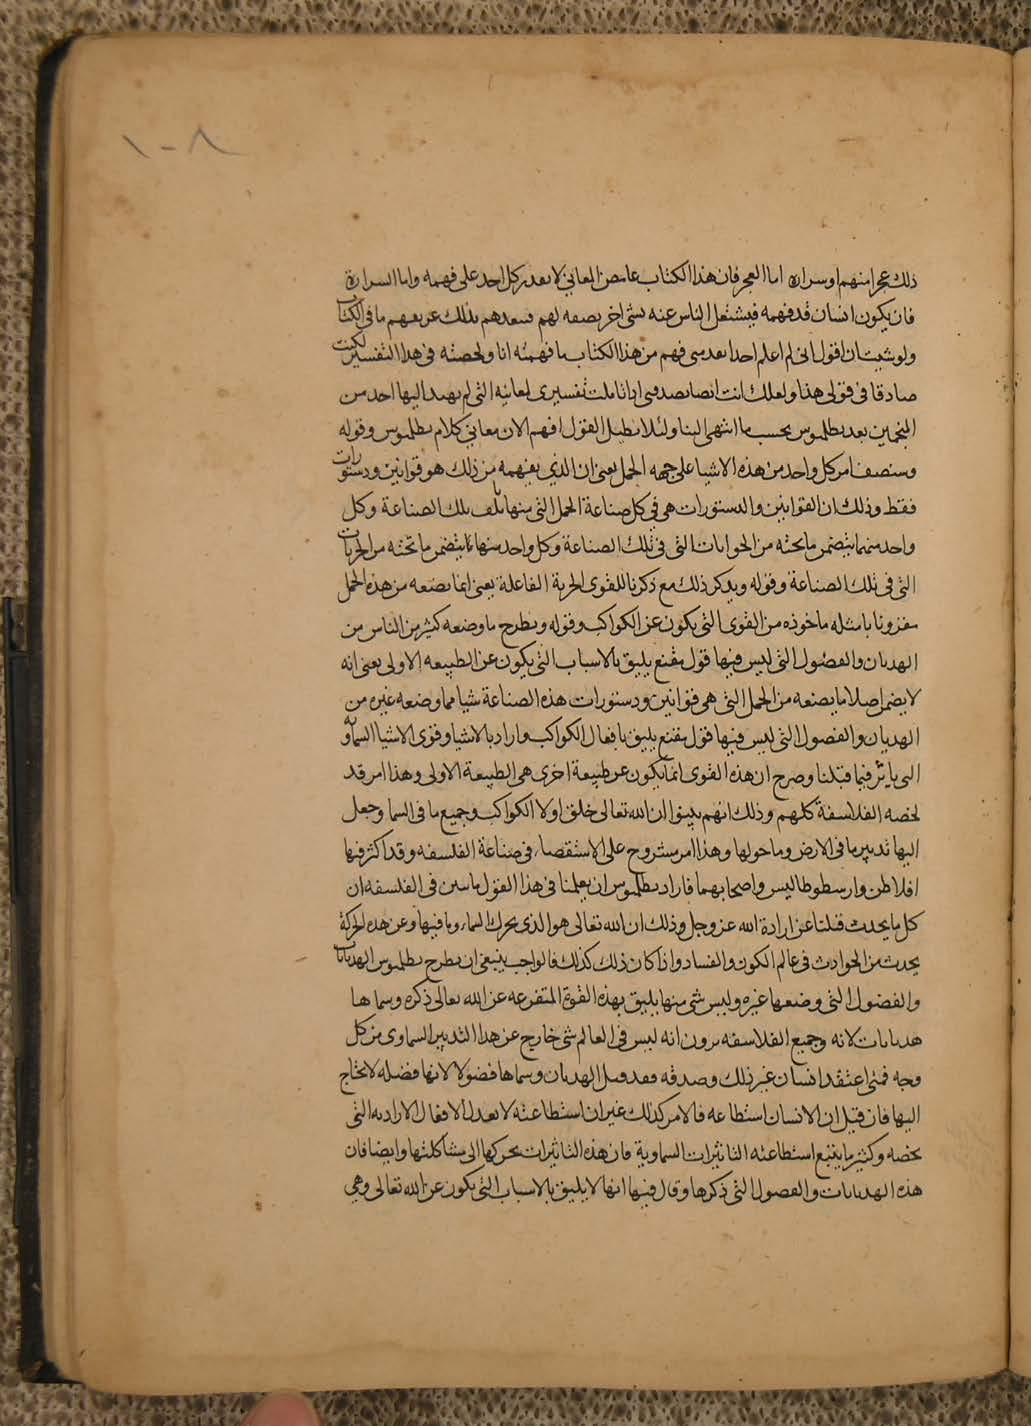 ١٠٨
ذلك عجزا منهم او شرارة اما العجز فان هذا الكتاب غامض المعاني لا يقدر كل احد على فهمه واما الشرارة
فان يكون انسان قد فهمه فيشتغل الناس عنه بشي اخر يصفه لهم فيبعدهم بذلك عن تفهم ما في الكتاب
ولو شيت ان اقول اني لم اعلم احدا بعدي فهم من هذا الكتاب ما فهمته انا ولخصته في هذا التفسير لكنت
صادقا في قولي هذا ولعلك انت ايضا تصدقني اذا تاملت تفسيري لمعانيه التي لم يهتد اليها احد من
المنجمين بعد بطلميوس بحسب ما انتهى الينا ولئلا نطيل القول افهم الان معاني كلام بطلميوس وقوله
وسنصف امر كل واحد من هذه الاشيا على جهة الجمل يعني ان الذي يفهمه من ذلك هو قوانين ودستورات
فقط وذلك ان القوانين والدستورات هي في كل صناعة الجمل التي منها تالف تلك الصناعة وكل
واحد منهما يتضمن ما تحته من الجزئيات التي في تلك الصناعة وكل واحد منها يتضمن ما تحته من الجزيات
التي في تلك الصناعة وقوله ويذكر ذلك مع ذكرنا للقوى الجزية الفاعلة يعني انما يضعه من هذه الجمل
مقرونا بامثله ماخوذه من القوى التي يكون عن الكواكب وقوله ونطرح ما وضعه كثير من الناس من
الهذيان والفضول التي ليس فيها قول مقنع يليق بالاسباب التي يكون عن الطبيعه الاولى يعني انه
لا يضمن اصلا ما يضعه من الجمل التي هي قوانين ودستورات هذه الصناعة شيا مما وضعه غيره من
الهذيان والفضول التي ليس فيها قول مقنع يليق بافعال الكواكب واراد بالاشيا وقوى الاشيا السماويه
التي ياثر فيما قبلنا وصرح ان هذه القوى انما يكون عن طبيعة اخرى هي الطبيعة الاولى وهذا امر قد
لخصه الفلاسفة كلهم وذلك انهم بينوا ان الله تعالى خلق اولا الكواكب وجميع ما في السما وجعل
اليها تدبير ما في الارض وما حولها وهذا امر مشروح على الاستقصاء في صناعة الفلسفه وقد اكثر فيها
افلاطن وارسطوطاليس واصحابهما فاراد بطلميوس ان يعلمنا في هذا القول ما تبين في الفلسفه ان
كل ما يحدث قبلنا عن ارادة الله عز وجل وذلك ان الله تعالى هو الذي يحرك السماء وما فيها وعن هذه الحركة
يحدث من الحوادث في عالم الكون والفساد واذا كان ذلك كذلك فالواجب ينبغي ان يطرح بطلميوس الهذيانات
والفضول التي وضعها غيره وليس شي منها يليق بهذه القوة المتفرعه عن الله تعالى ذكره وسماها
هذيانات لانه وجميع الفلاسفه يرون انه ليس في العالم شي خارج عن هذا التدبير السماوي من كل
وجه فمتى اعتقد انسان غير ذلك وصدقه فقد قبل الهذيان وسماها فضولا لانها فضله لا يحتاج
اليها فان قيل ان الانسان استطاعه فالامر كذلك غير ان استطاعته لا تعدل الافعال الاراديه التي
تخصه وكثير ما يتبع استطاعته التاثيرات السماوية فان هذه التاثيرات تحركها الى مشاكلتها وايضا فان
هذه الهذيانات والفضول التي ذكرها وقال فيها انها لا يليق بالاسباب التي يكون عن الله تعالى وهي